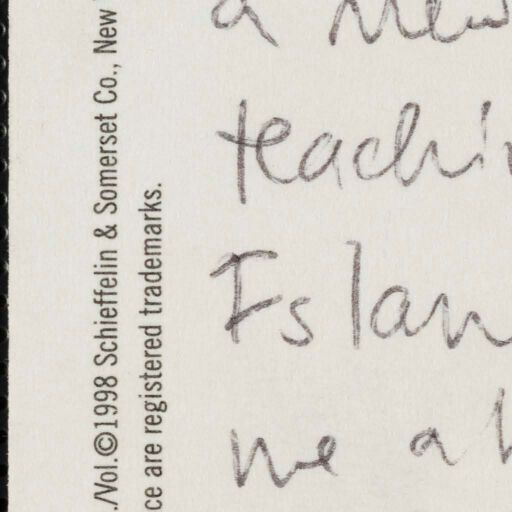 ./Vol.©1998 Schieffelin & Somerset Co., New
ce are registered trademarks.
a new
teachin
Islan
me a